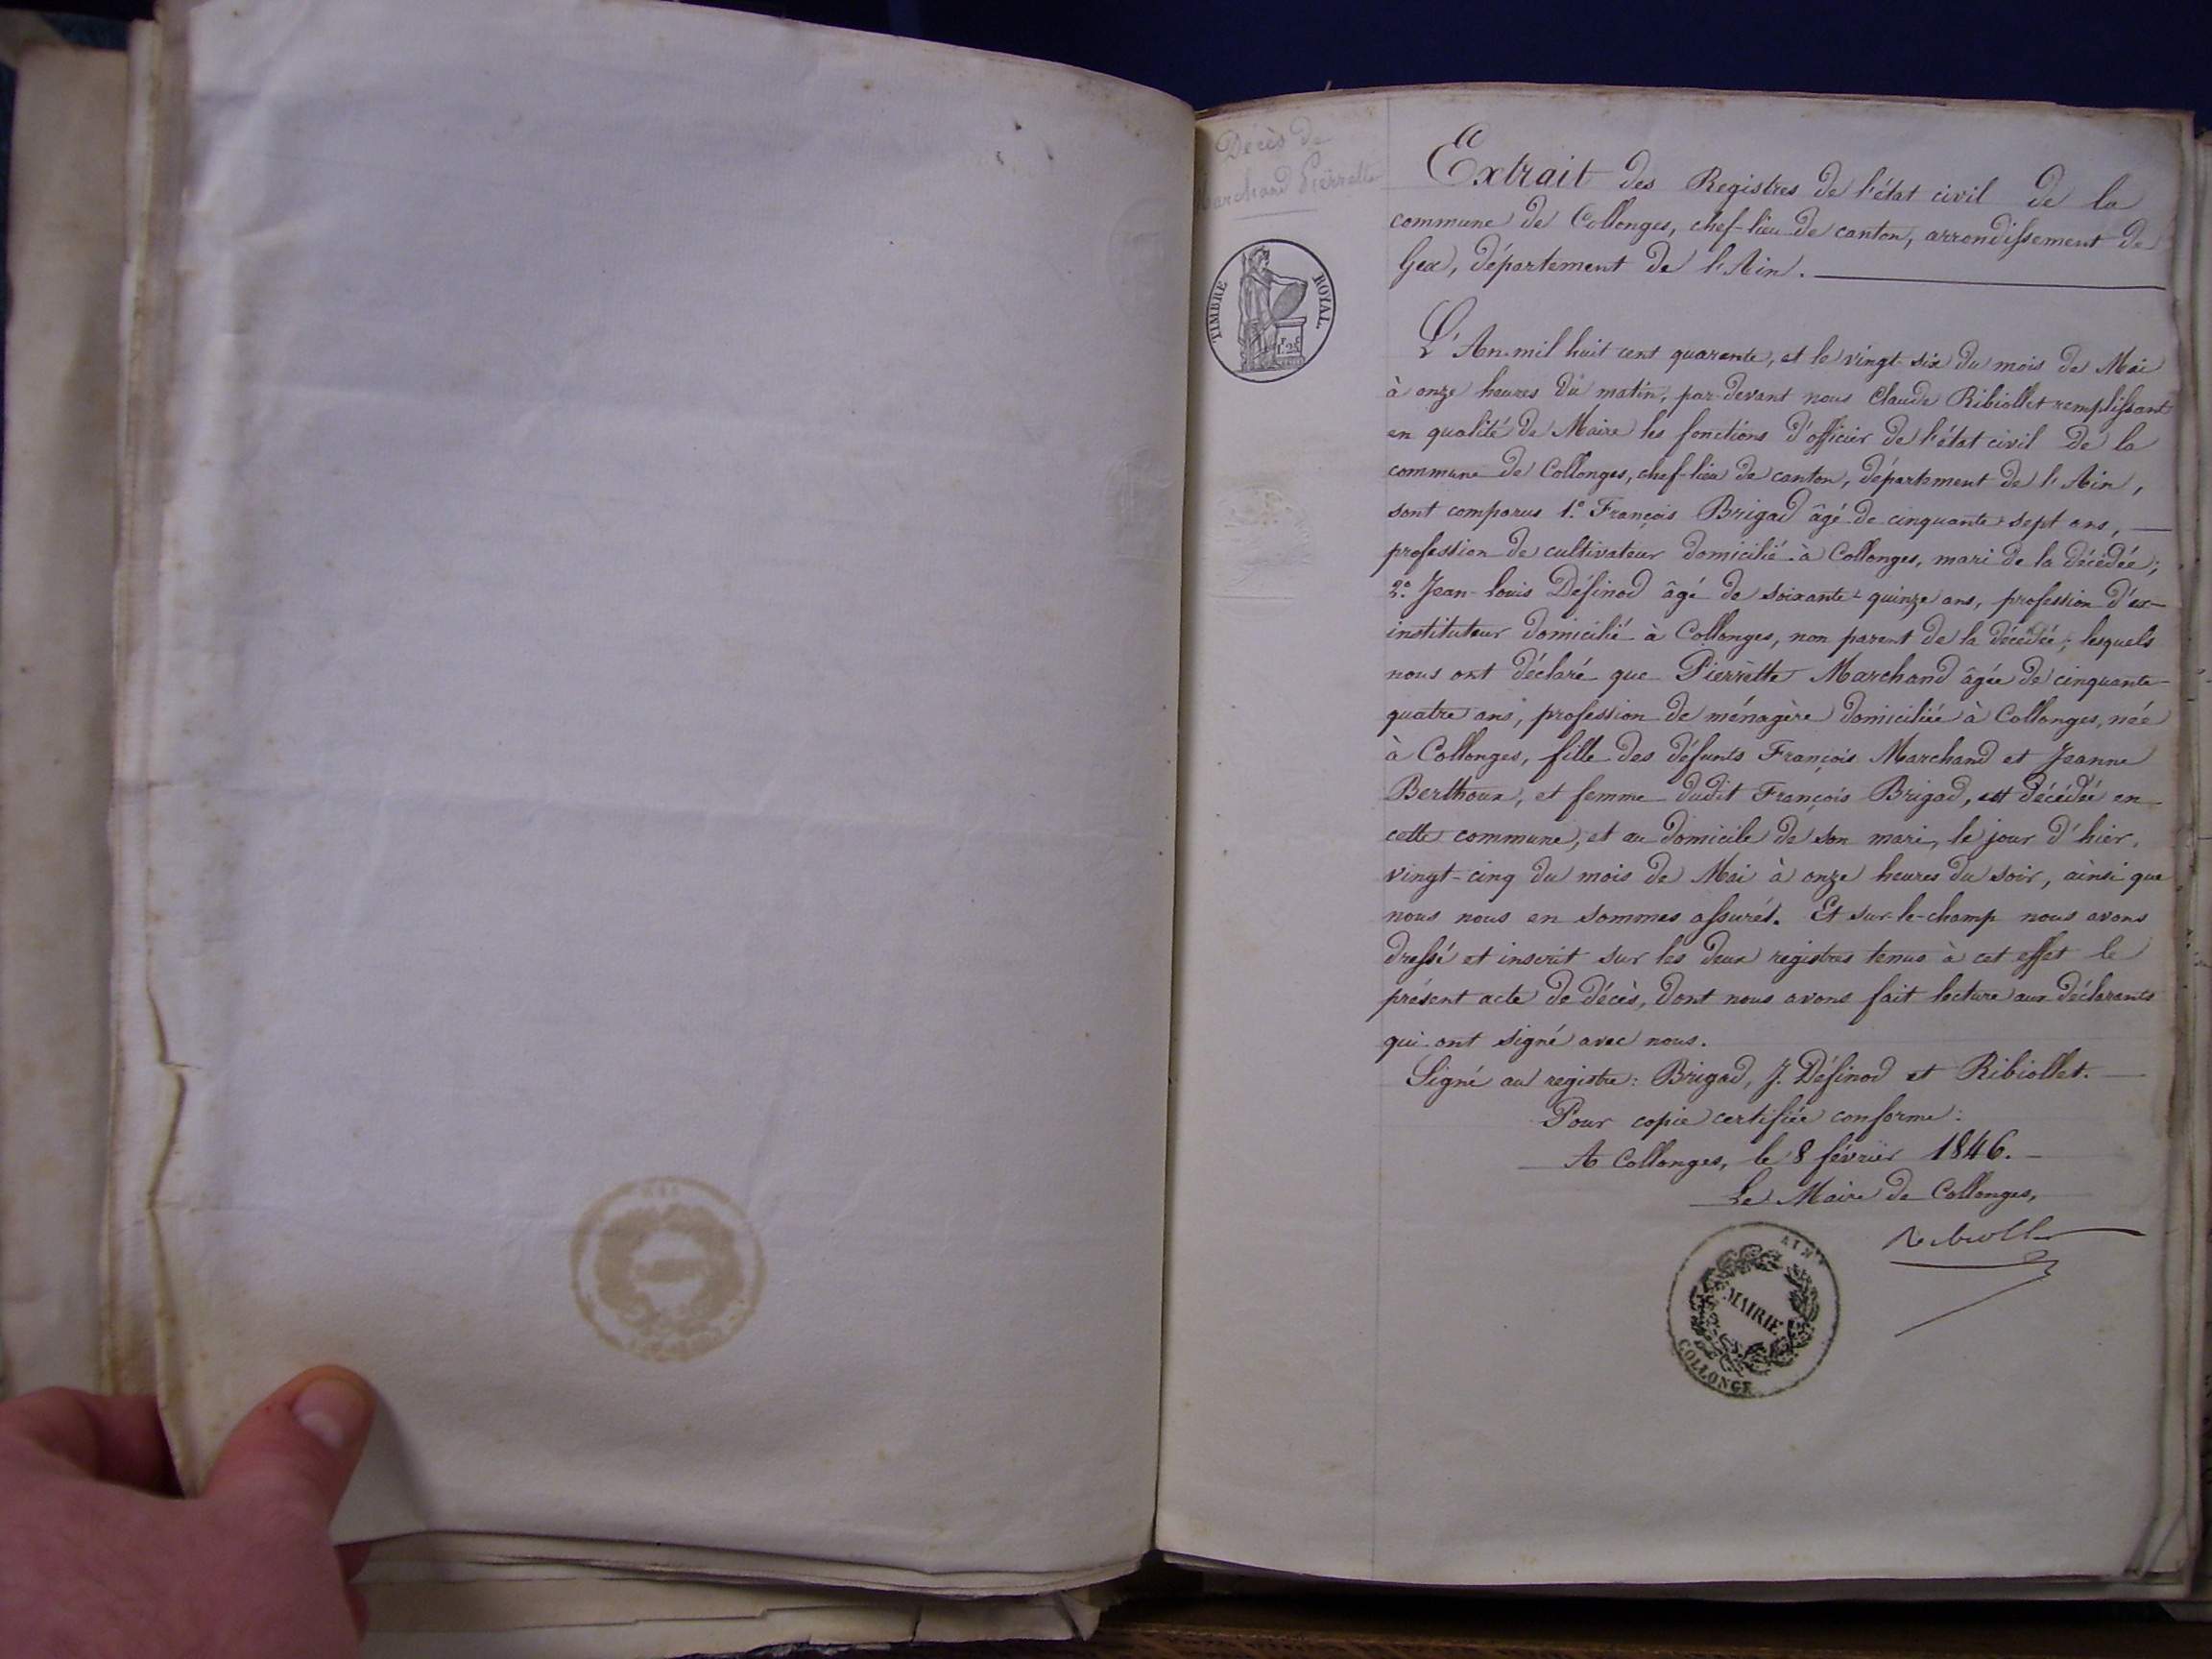 Décès de
Marchand Pierrette
TIMBRE ROYAL
Extrait des Registres de l'état civil de la
commune de Collonges, chef-lieu de canton, arrondissement de
Gex, département de l'Ain.
L'An mil huit cent quarante, et le vingt-six du mois de Mai
à onze heures du matin, par-devant nous Claude Ribiollet remplissant
en qualité de Maire les fonctions d'officier de l'état civil de la
commune de Collonges, chef-lieu de canton, département de l'Ain,
sont comparus 1.º François Brigad âgé de cinquante-sept ans,
profession de cultivateur domicilié à Collonges, mari de la décédée;
2.º Jean-Louis Définod âgé de soixante-quinze ans, profession d'ex-
instituteur domicilié à Collonges, non parent de la décédée; lesquels
nous ont déclaré que Pierrette Marchand âgée de cinquante-
quatre ans, profession de ménagère domiciliée à Collonges, née
à Collonges, fille des défunts François Marchand et Jeanne
Berthoux, et femme dudit François Brigad, est décédée en
cette commune, et au domicile de son mari, le jour d'hier,
vingt-cinq du mois de Mai à onze heures du soir, ainsi que
nous nous en sommes assurés. Et sur-le-champ nous avons
dressé et inscrit sur les deux registres tenus à cet effet le
présent acte de décès, dont nous avons fait lecture aux déclarants
qui ont signé avec nous.
Signé au registre: Brigad, J. Définod et Ribiollet.
Pour copie certifiée conforme:
A Collonges, le 8 février 1846.
Le Maire de Collonges,
AIN
MAIRIE
COLLONGE